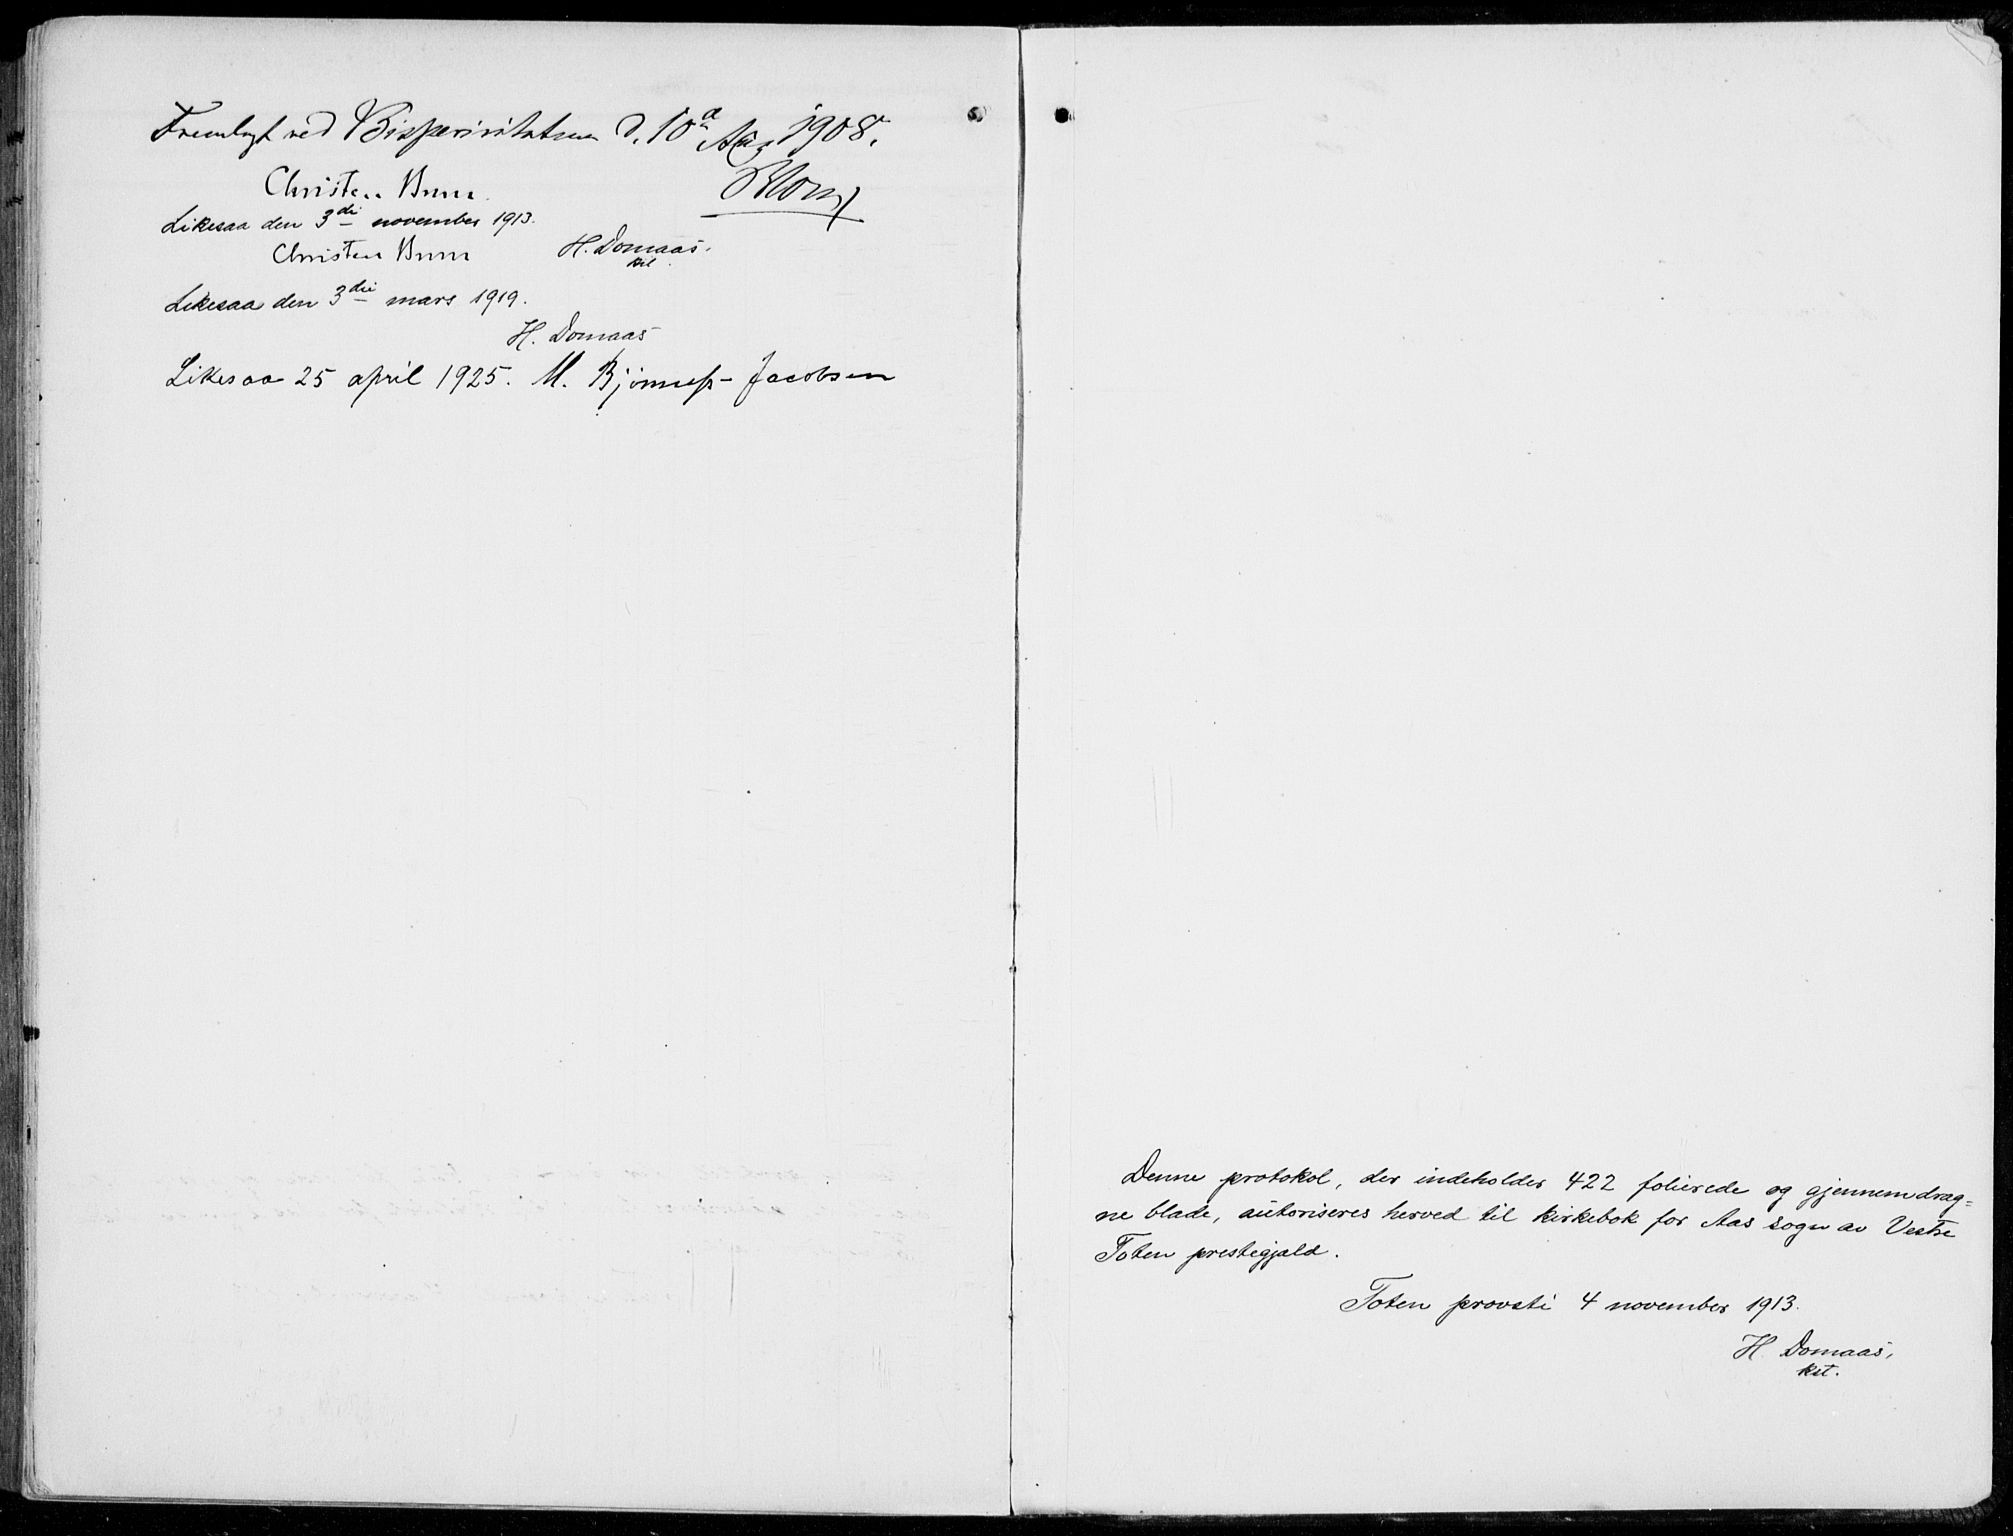 Fremlagt ved Bispevisitatsen d. 10de Aug 1908.
Christen Brun Blom
Likesaa den 3die november 1913.
Christen Brun H. Domaas.
kst.
Likesaa den 3die mars 1919.
H. Domaas
Likesaa 25 april 1925. M. Bjønness-Jacobsen
Denne protokol, der indeholder 422 folierede og gjennemdrag=
ne blade, autoriseres herved til kirkebok for Aas sogn av Vestre
Toten prestegjæld.
Toten provsti 4 november 1913.
H. Domaas,
kst.